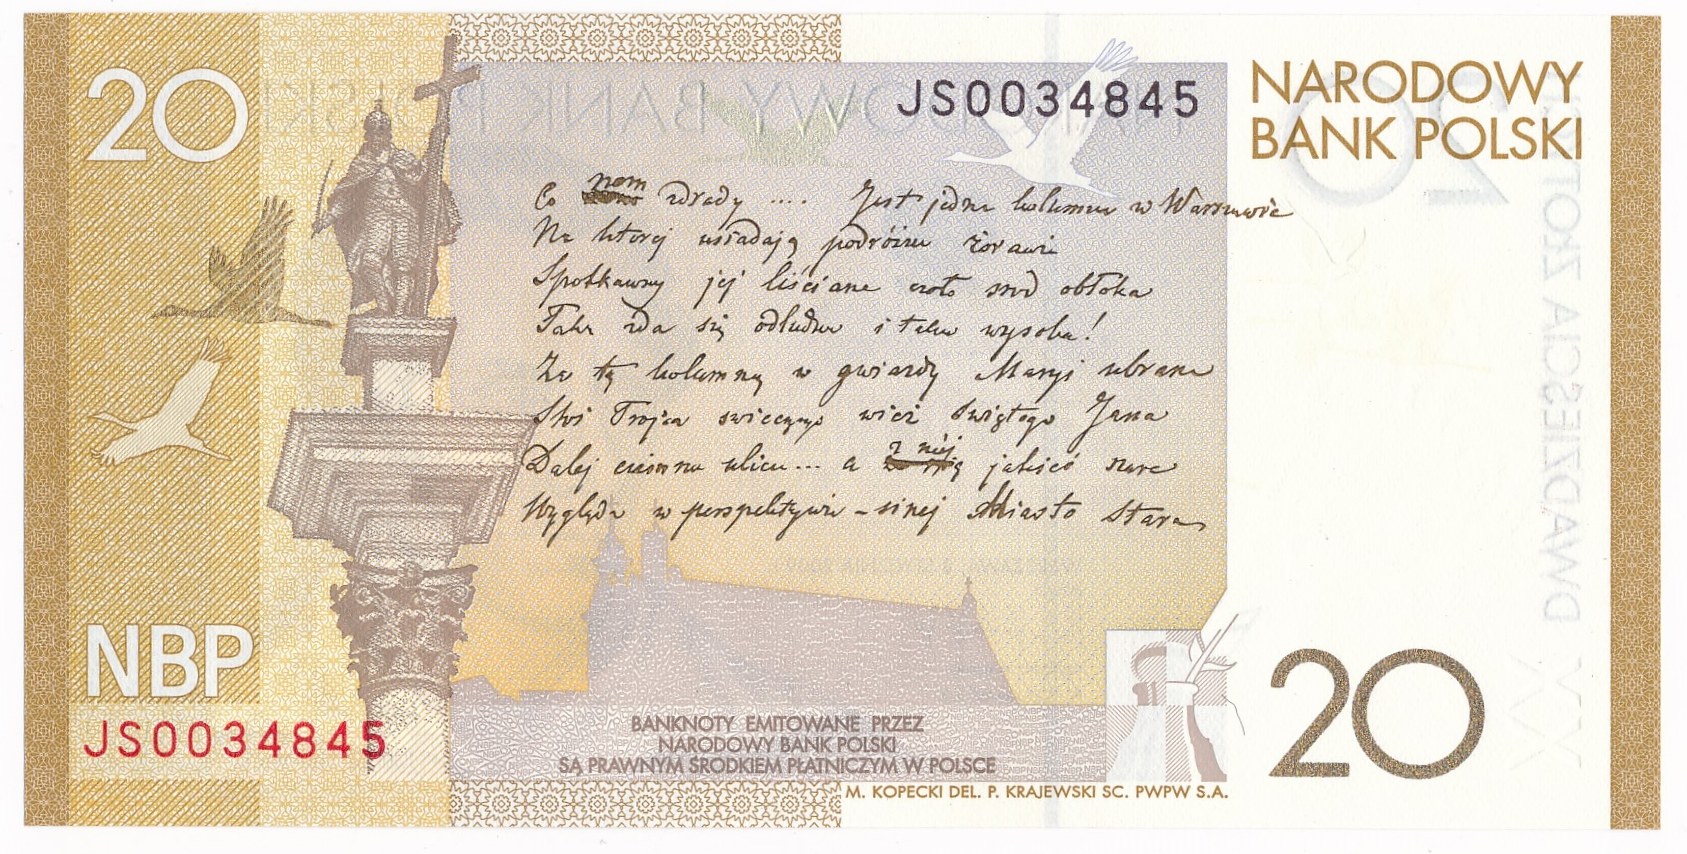 20
JS0034845
NARODOWY
BANK POLSKI
Co nam zdrady .... Jest jedna kolumna w Warszawie
Na ktorej usiadają podróżne żorawie
Spotkawszy jej liściane czoło środ obłoka
Taka zda się odludna i taka wysoka!
Za tą kolumną w gwiazdy Maryi ubrana
Stoi Trojca swiecących wież Swiętego Jana
Dalej ciemna ulica... a z niéj jakieś szare
Wygląda w perspektywie - sinej Miasto Stare
NBP
JS0034845
BANKNOTY EMITOWANE PRZEZ
NARODOWY BANK POLSKI
SĄ PRAWNYM ŚRODKIEM PŁATNICZYM W POLSCE
20
M. KOPECKI DEL. P. KRAJEWSKI SC. PWPW S.A.